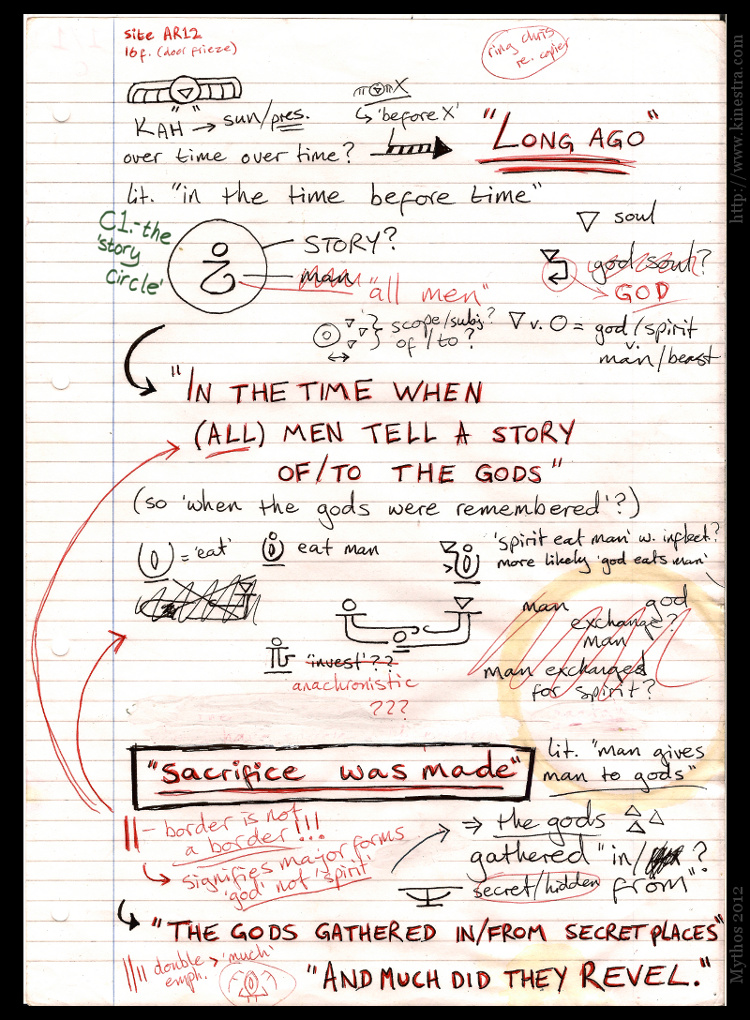 site AR12
16f. (door frieze)
ring chris
re. copier
" "
KAH → sun/pres.
X
↳ 'before X'
"LONG AGO"
over time over time?
lit. "in the time before time"
C1.-the
'story
circle'
STORY?
man
"all men"
▽ soul
god soul?
GOD
scope/subj?
of/to?
▽ v. O = god/spirit
v.
man/beast
"IN THE TIME WHEN
(ALL) MEN TELL A STORY
OF/TO THE GODS"
(so 'when the gods were remembered'?)
= 'eat'
eat man
'spirit eat man' w. inflect?
more likely 'god eats man'
man god
exchange?
man
man exchanged
for spirit?
'invest'??
anachronistic
???
"sacrifice was made"
lit. "man gives
man to gods"
|| - border is not
a border!!!
↳ signifies major forms
'god' not 'spirit'
⇒ the gods
gathered "in/ ?
secret/hidden from"
"THE GODS GATHERED IN/FROM SECRET PLACES"
double → 'much'
emph.
"AND MUCH DID THEY REVEL."
http://www.kinestra.com
Mythos 2012